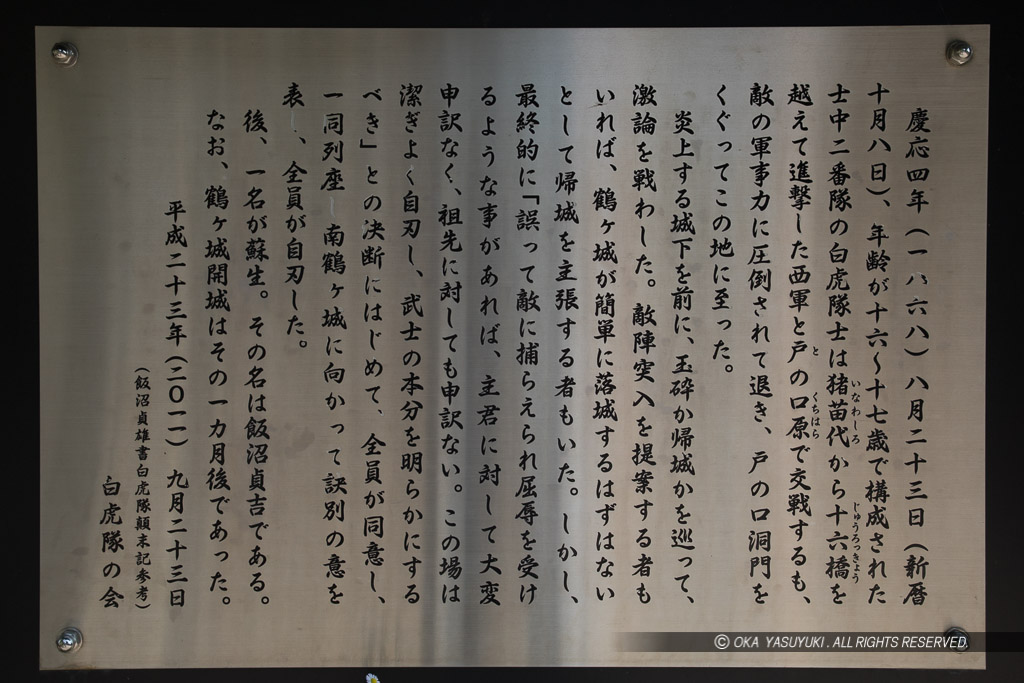 慶応四年(一八六八)八月二十三日(新暦
十月八日)、年齢が十六~十七歳で構成された
士中二番隊の白虎隊士は猪苗代から十六橋を
いなわしろ
じゅうろっきょう
越えて進撃した西軍と戸の口原で交戦するも、
と
くちはら
敵の軍事力に圧倒されて退き、戸の口洞門を
くぐってこの地に至った。
炎上する城下を前に、玉砕か帰城かを巡って、
激論を戦わした。敵陣突入を提案する者も
いれば、鶴ヶ城が簡単に落城するはずはない
として帰城を主張する者もいた。しかし、
最終的に「誤って敵に捕らえられ屈辱を受け
るような事があれば、主君に対して大変
申訳なく、祖先に対しても申訳ない。この場は
潔ぎよく自刃し、武士の本分を明らかにする
べき」との決断にはじめて、全員が同意し、
一同列座し南鶴ヶ城に向かって訣別の意を
表し、全員が自刃した。
後、一名が蘇生。その名は飯沼貞吉である。
なお、鶴ヶ城開城はその一カ月後であった。
平成二十三年(二〇一一)九月二十三日
(飯沼貞雄書白虎隊顛末記参考)
白虎隊の会
© OKA YASUYUKI . ALL RIGHTS RESERVED.